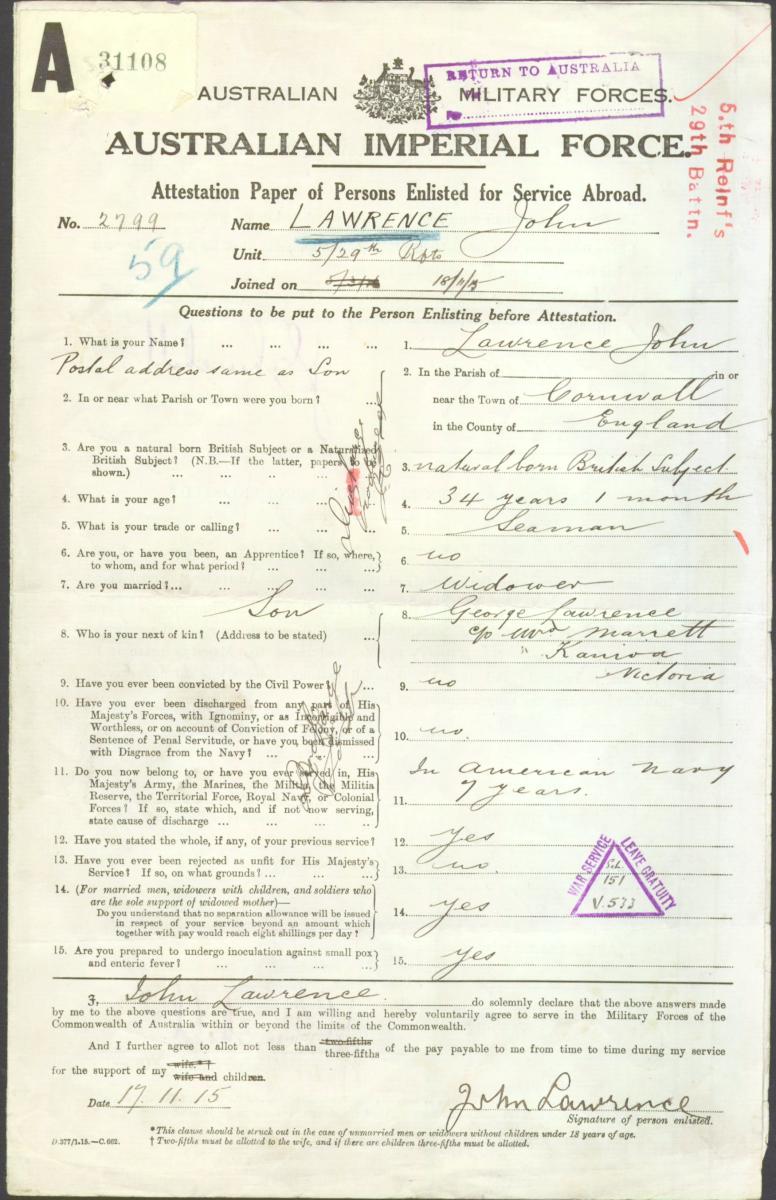 A 31108
AUSTRALIAN MILITARY FORCES.
RETURN TO AUSTRALIA
AUSTRALIAN IMPERIAL FORCE.
5.th Reinf's
29th Battn.
Attestation Paper of Persons Enlisted for Service Abroad.
No. 2799 Name LAWRENCE John
59
Unit 5/29th Rfts
Joined on 18/11/15
Questions to be put to the Person Enlisting before Attestation.
1. What is your Name? ... ... ... ... 1. Lawrence John
Postal address same as Son
2. In or near what Parish or Town were you born? ... 2. In the Parish of in or
near the Town of Cornwall
in the County of England
3. Are you a natural born British Subject or a Naturalized
British Subject? (N.B.—If the latter, papers to be
shown.) ... ... ... ... 3. natural born British Subject
4. What is your age? ... ... ... ... 4. 34 years 1 month
5. What is your trade or calling? ... ... ... 5. Seaman
6. Are you, or have you been, an Apprentice? If so, where,
to whom, and for what period? ... ... ... 6. no
7. Are you married?... ... ... ... ... 7. Widower
Son
8. Who is your next of kin? (Address to be stated) ... 8. George Lawrence
c/o Mrs Marrett
" Kaniva
Victoria
9. Have you ever been convicted by the Civil Power? ... 9. no
10. Have you ever been discharged from any part of His
Majesty's Forces, with Ignominy, or as Incorrigible and
Worthless, or on account of Conviction of Felony, or of a
Sentence of Penal Servitude, or have you been dismissed
with Disgrace from the Navy? ... ... ... 10. no.
11. Do you now belong to, or have you ever served in, His
Majesty's Army, the Marines, the Militia, the Militia
Reserve, the Territorial Force, Royal Navy, or Colonial
Forces? If so, state which, and if not now serving,
state cause of discharge ... ... ... .. 11. In American Navy
7 years.
12. Have you stated the whole, if any, of your previous service? 12. yes
13. Have you ever been rejected as unfit for His Majesty's
Service? If so, on what grounds? ... ... ... 13. no.
14. (For married men, widowers with children, and soldiers who
are the sole support of widowed mother)—
Do you understand that no separation allowance will be issued
in respect of your service beyond an amount which
together with pay would reach eight shillings per day? 14. yes
WAR SERVICE LEAVE GRATUITY
151
V.533
15. Are you prepared to undergo inoculation against small pox
and enteric fever? ... ... ... ... 15. yes
I, John Lawrence. do solemnly declare that the above answers made
by me to the above questions are true, and I am willing and hereby voluntarily agree to serve in the Military Forces of the
Commonwealth of Australia within or beyond the limits of the Commonwealth.
And I further agree to allot not less than two-fifths three-fifths of the pay payable to me from time to time during my service
for the support of my wife.*† wife and children.
Date 17.11.15 John Lawrence
Signature of person enlisted.
*This clause should be struck out in the case of unmarried men or widowers without children under 18 years of age.
D.377/1.15.—C.662. † Two-fifths must be allotted to the wife, and if there are children three-fifths must be allotted.